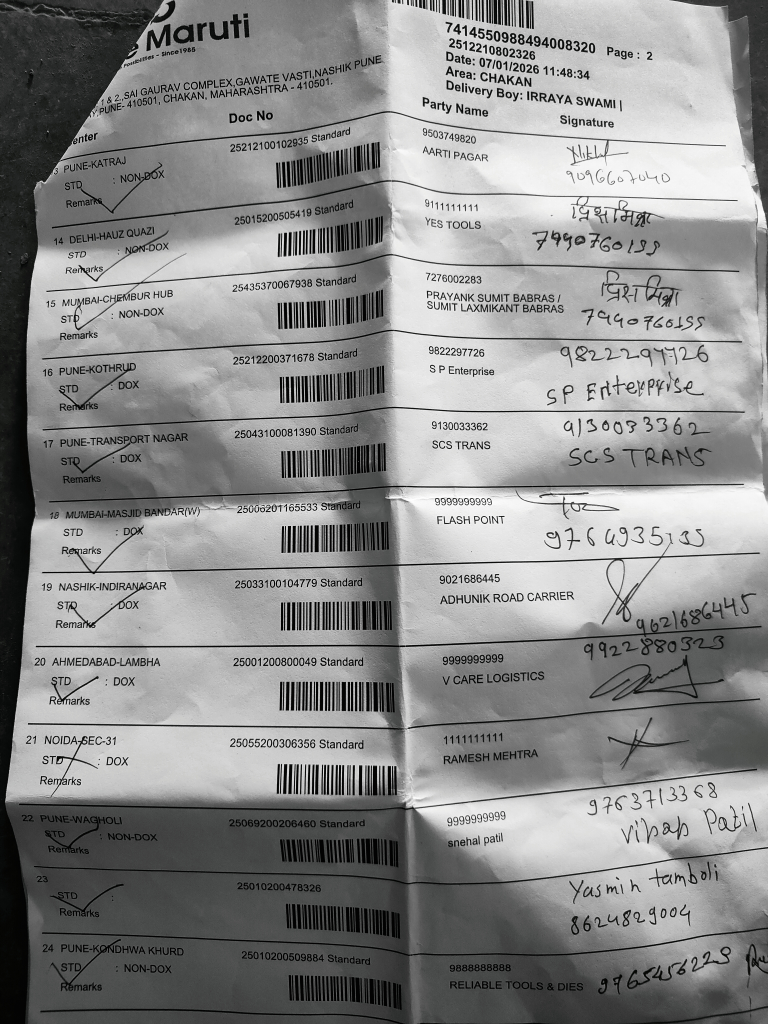 Maruti
Possibilities - Since1985
7414550988494008320 Page : 2
2512210802326
Date: 07/01/2026 11:48:34
Area: CHAKAN
Delivery Boy: IRRAYA SWAMI |
1 & 2.,SAI GAURAV COMPLEX,GAWATE VASTI,NASHIK PUNE
PUNE- 410501, CHAKAN, MAHARASHTRA - 410501.
Doc No Party Name Signature
3 PUNE-KATRAJ 25212100102935 Standard 9503749820
STD : NON-DOX AARTI PAGAR
Remarks 9096607040
14 DELHI-HAUZ QUAZI 25015200505419 Standard 9111111111
STD : NON-DOX YES TOOLS
Remarks 7990760155
15 MUMBAI-CHEMBUR HUB 25435370067938 Standard 7276002283
STD : NON-DOX PRAYANK SUMIT BABRAS /
SUMIT LAXMIKANT BABRAS
Remarks 7990760155
16 PUNE-KOTHRUD 25212200371678 Standard 9822297726 9822297726
STD : DOX S P Enterprise
Remarks SP Enterprise
17 PUNE-TRANSPORT NAGAR 25043100081390 Standard 9130033362 9130033362
STD : DOX SCS TRANS SCS TRANS
Remarks
18 MUMBAI-MASJID BANDAR(W) 25006201165533 Standard 9999999999
STD : DOX FLASH POINT
Remarks 9764935135
19 NASHIK-INDIRANAGAR 25033100104779 Standard 9021686445
STD : DOX ADHUNIK ROAD CARRIER
Remarks 9621686445
20 AHMEDABAD-LAMBHA 25001200800049 Standard 9999999999 9922880323
STD : DOX V CARE LOGISTICS
Remarks
21 NOIDA-SEC-31 25055200306356 Standard 1111111111
STD : DOX RAMESH MEHTRA
Remarks
22 PUNE-WAGHOLI 25069200206460 Standard 9999999999 9763713368
STD : NON-DOX snehal patil Vibab Patil
Remarks
23 25010200478326 Yasmin tamboli
STD :
Remarks 8624829004
24 PUNE-KONDHWA KHURD 25010200509884 Standard 9888888888
STD : NON-DOX RELIABLE TOOLS & DIES 9765456223
Remarks